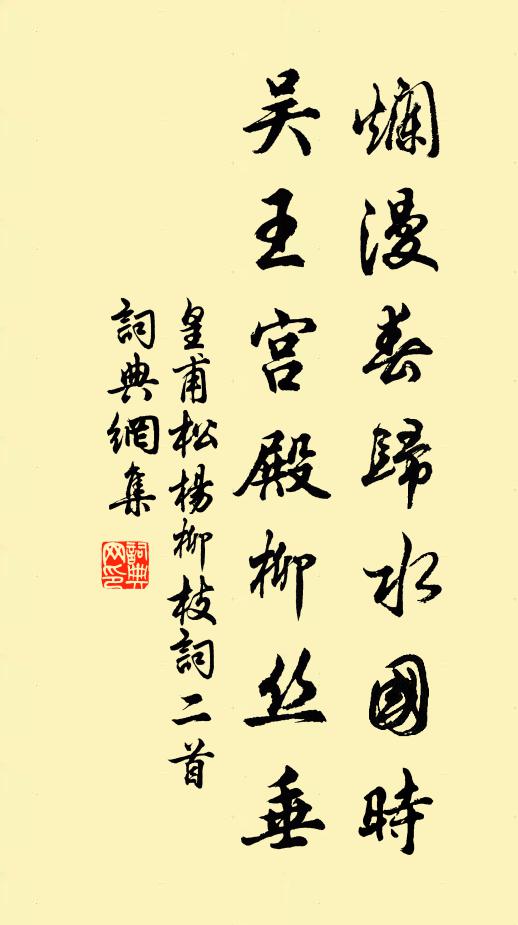 爛漫春歸水國時
吳王宮殿柳丝垂
皇甫松楊柳枝詞二首
詞典網集
詞典網印